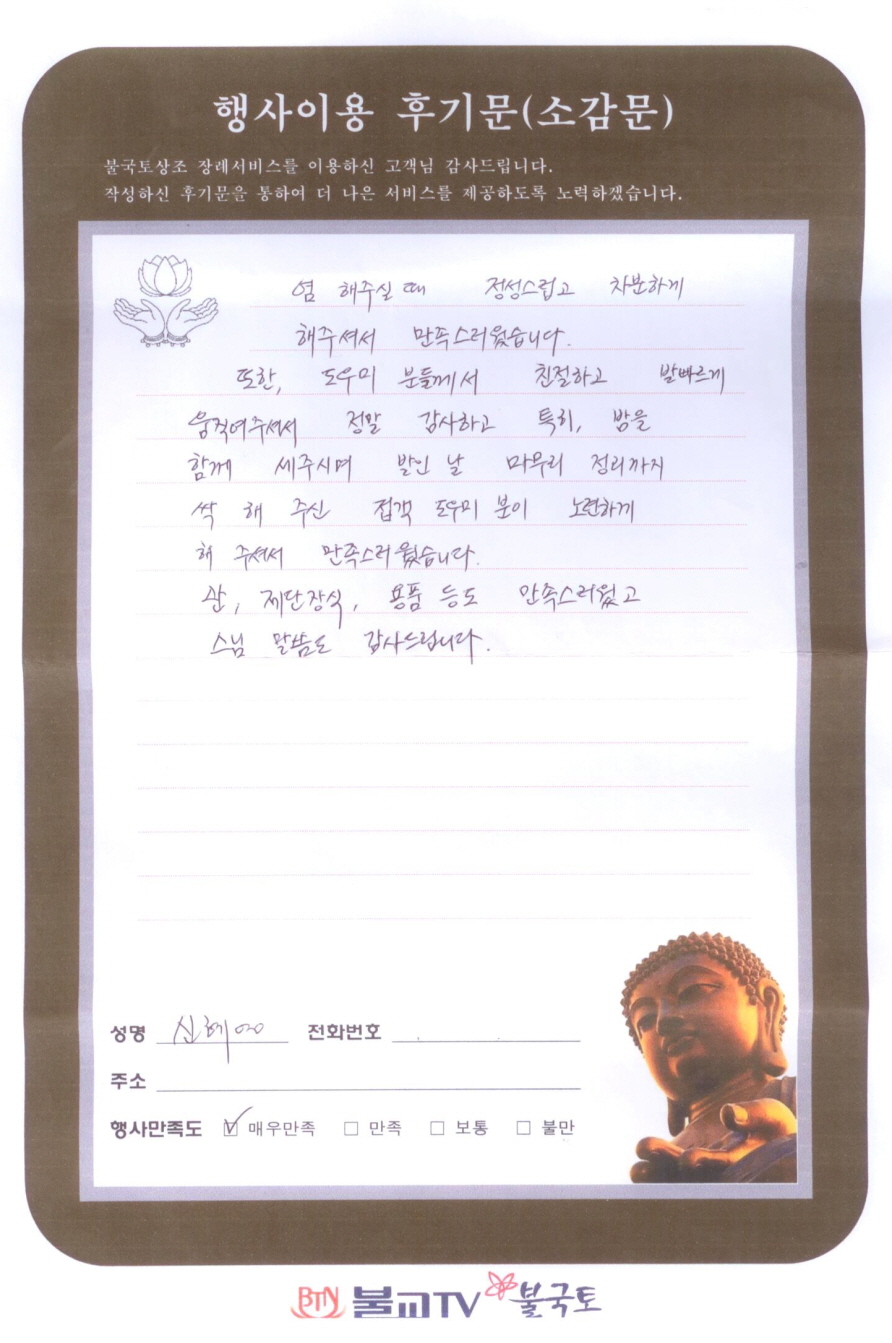 행사이용 후기문(소감문)
불국토상조 장례서비스를 이용하신 고객님 감사드립니다.
작성하신 후기문을 통하여 더 나은 서비스를 제공하도록 노력하겠습니다.
염 해주실 때 정성스럽고 차분하게
해주셔서 만족스러웠습니다.
또한, 도우미 분들께서 친절하고 발빠르게
움직여주셔서 정말 감사하고 특히, 밤을
함께 세주시며 발인 날 마무리 정리까지
싹 해 주신 접객 도우미 분이 노련하게
해 주셔서 만족스러웠습니다.
관, 제단장식, 용품 등도 만족스러웠고
스님 말씀도 감사드립니다.
성명 신혜 전화번호
주소
행사만족도 ☑ 매우만족 □ 만족 □ 보통 □ 불만
BTN 불교TV 불국토